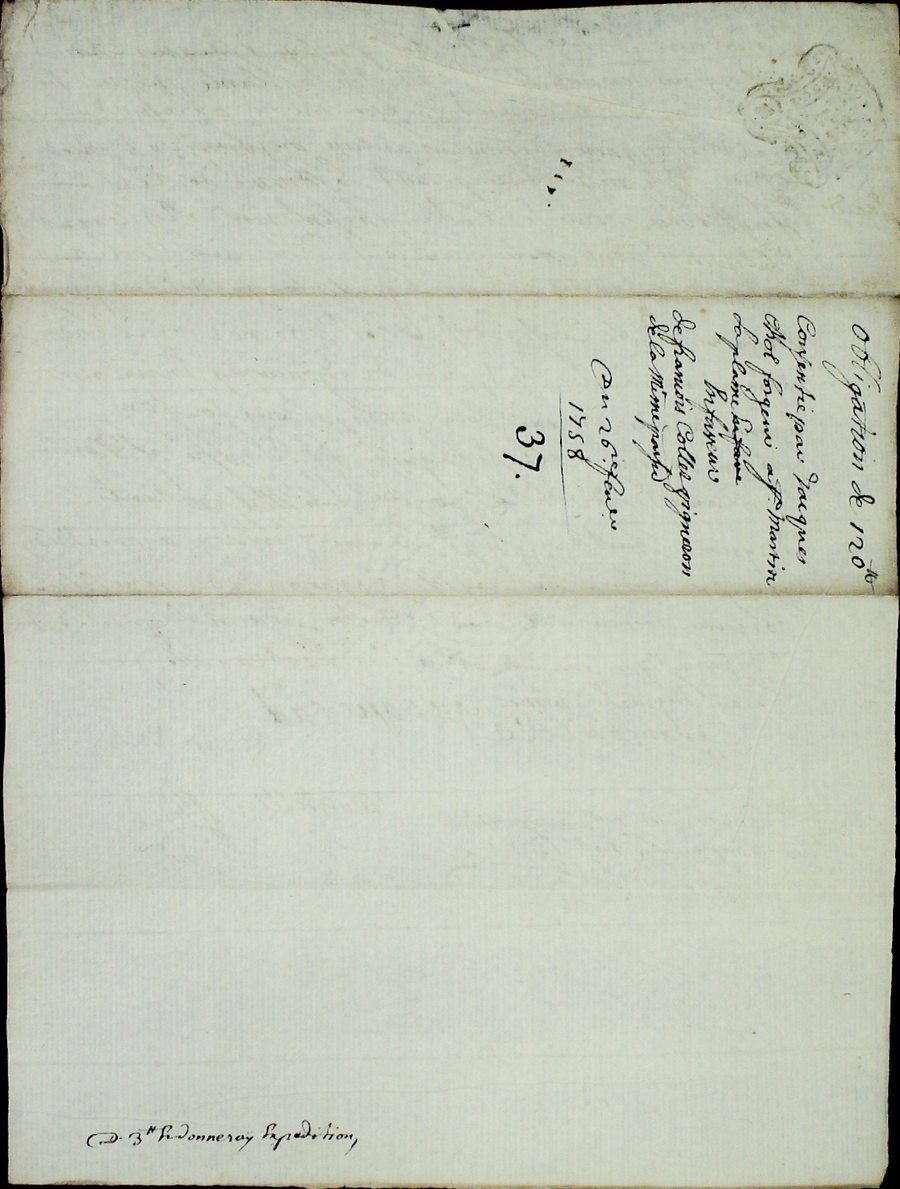 Obligation de 120ᵗᵗ
Consentie par Jacques
Chol forgeur a Sᵗ. Martin
la plaine Enfave
Enfaveur
de francois Collet vigneron
de la Même parsse
Du 26ᵉ fevrier
1758
37.
D. 3ᵗᵗ & donneray Expedition,